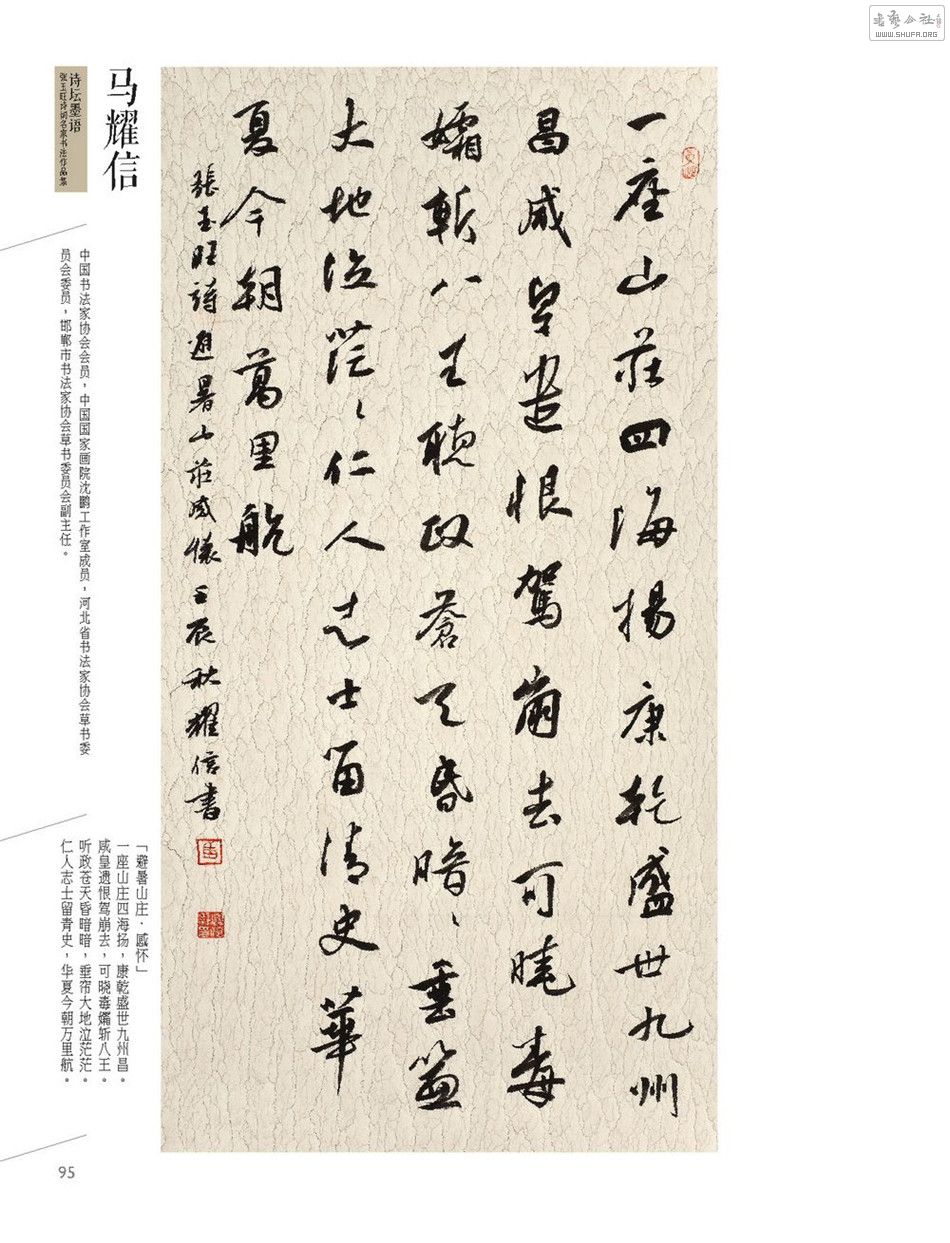 書藝公社
WWW.SHUFA.ORG
马耀信
诗坛墨语
张玉旺诗词名家书法作品集
一座山莊四海揚康乾盛世九州
昌咸皇遺恨駕崩去可曉毒
孀斬八王聽政蒼天昏暗〻垂簾
大地泣茫〻仁人志士留清史華
夏今朝萬里航
張玉旺詩避暑山莊感懷壬辰秋耀信書
中国书法家协会会员，中国国家画院沈鹏工作室成员，河北省书法家协会草书委
员会委员，邯郸市书法家协会草书委员会副主任。
「避暑山庄·感怀」
一座山庄四海扬，康乾盛世九州昌。
咸皇遗恨驾崩去，可晓毒孀斩八王。
听政苍天昏暗暗，垂帘大地泣茫茫。
仁人志士留青史，华夏今朝万里航。
95